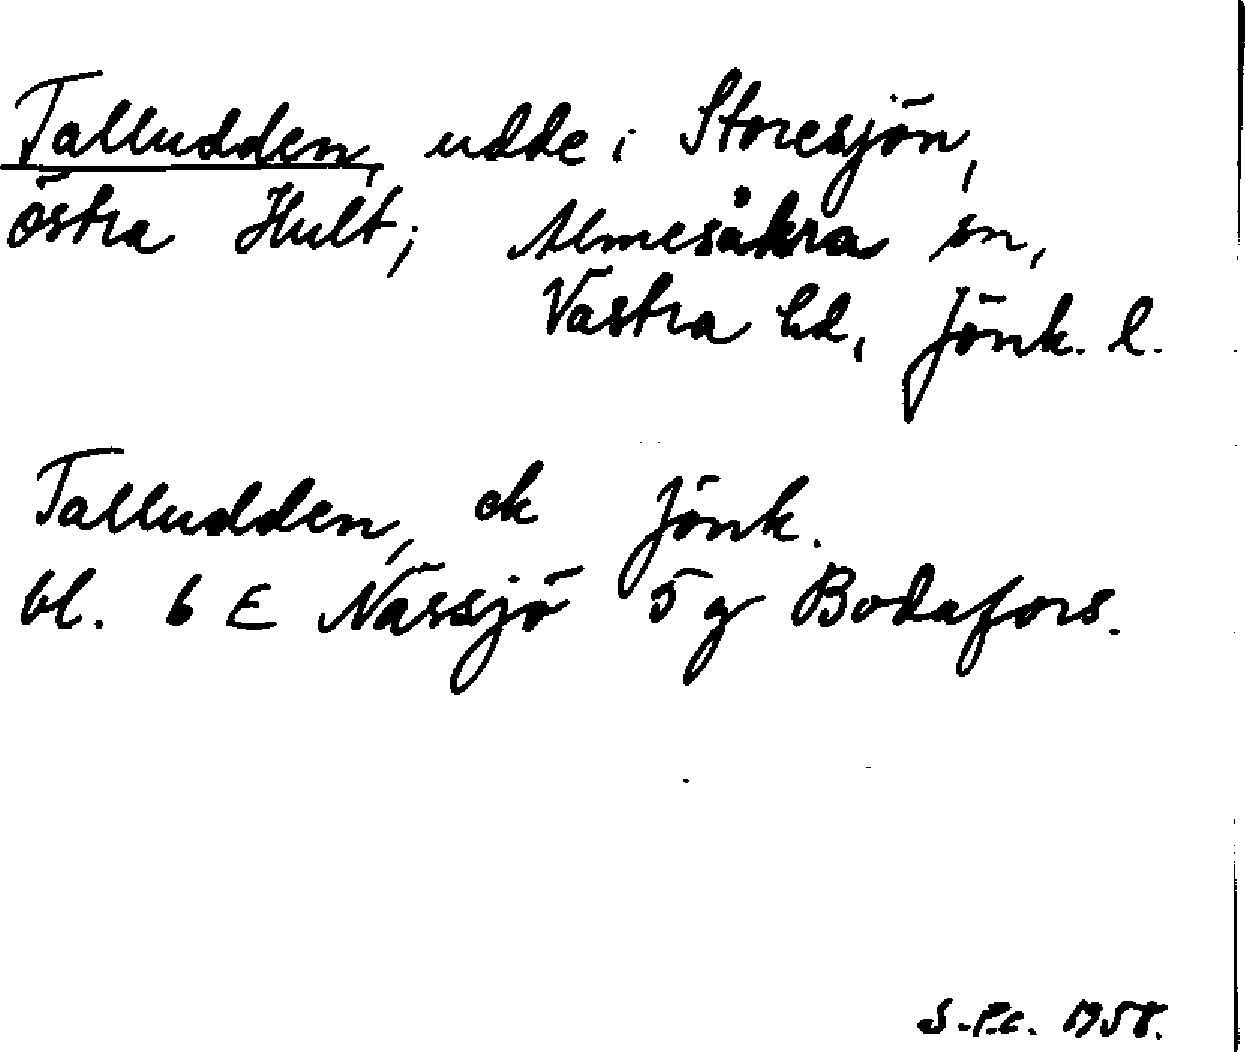 Talludden, udde i Storesjön,
Östra Hult; Almesåkra sn,
Västra hd, Jönk. l.
Talludden, ek Jönk.
bl. 6 E Nässjö 5 g Bodafors.
S-P.C. 1958.